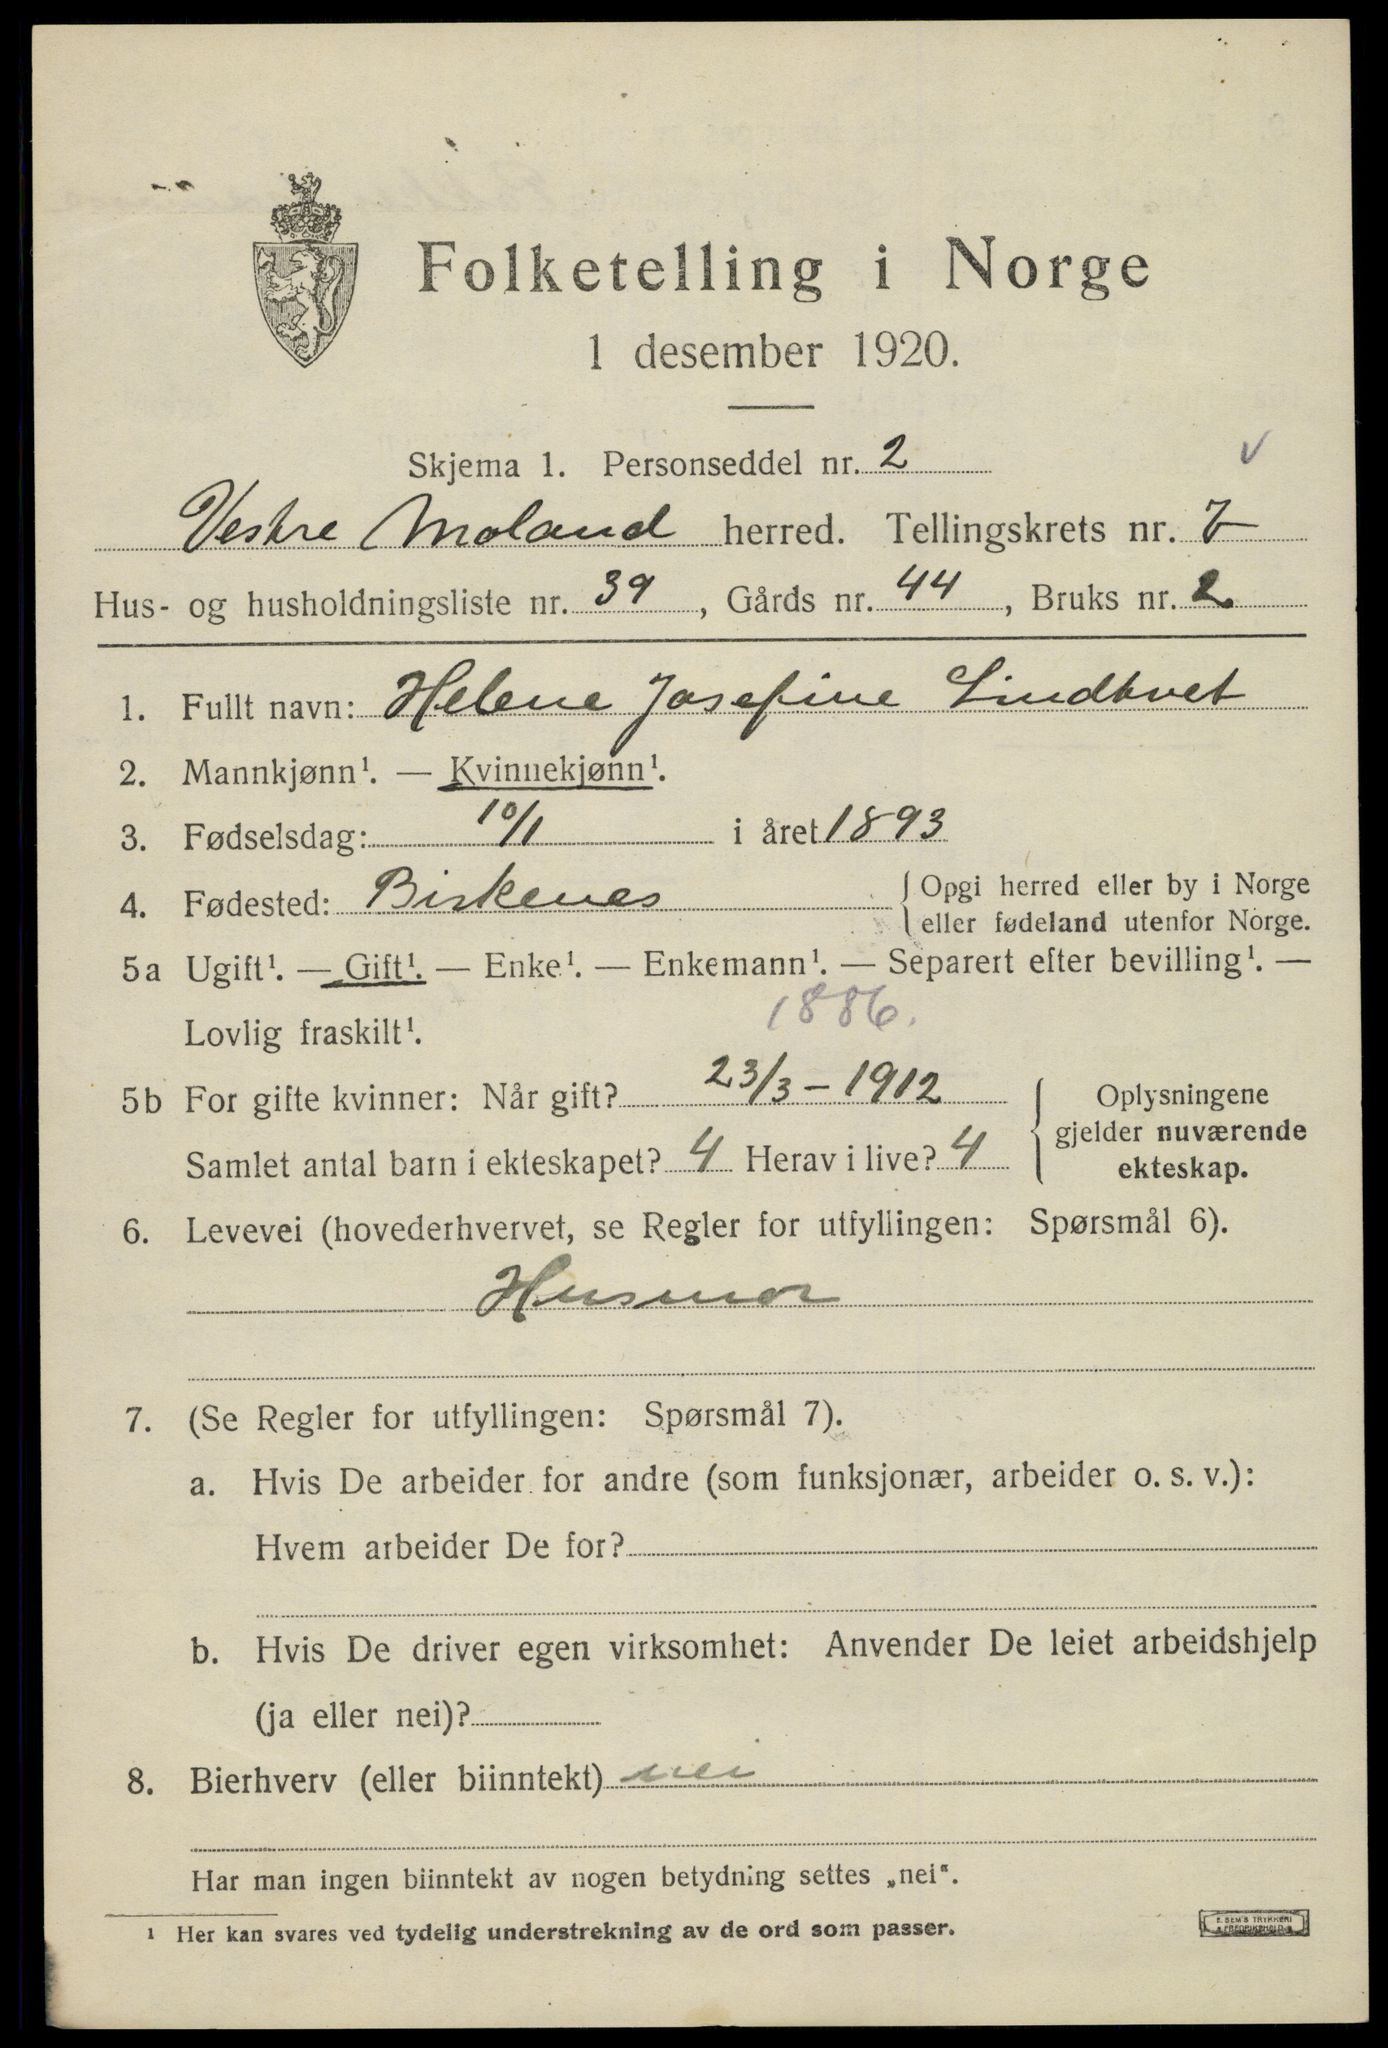 Folketelling i Norge
1 desember 1920.
Skjema 1. Personseddel nr. 2
Vestre Moland herred. Tellingskrets nr. 7
Hus- og husholdningsliste nr. 39, Gårds nr. 44, Bruks nr. 2
1. Fullt navn: Helene Josefine Lindtvet
2. Mannkjønn¹. — Kvinnekjønn¹.
3. Fødselsdag: 10/1 i året 1893
4. Fødested: Birkenes {Opgi herred eller by i Norge
eller fødeland utenfor Norge.
5a Ugift¹. — Gift¹. — Enke¹. — Enkemann¹. — Separert efter bevilling¹. —
1886.
Lovlig fraskilt¹.
5b For gifte kvinner: Når gift? 23/3 – 1912
Samlet antal barn i ekteskapet? 4 Herav i live? 4
Oplysningene
gjelder nuværende
ekteskap.
6. Levevei (hovederhvervet, se Regler for utfyllingen: Spørsmål 6).
Husmor
7. (Se Regler for utfyllingen: Spørsmål 7).
a. Hvis De arbeider for andre (som funksjonær, arbeider o. s. v.):
Hvem arbeider De for?
b. Hvis De driver egen virksomhet: Anvender De leiet arbeidshjelp
(ja eller nei)?
8. Bierhverv (eller biinntekt) nei
Har man ingen biinntekt av nogen betydning settes „nei“.
¹ Her kan svares ved tydelig understrekning av de ord som passer.
E. SEM'S TRYKKERI
FREDRIKSHALD